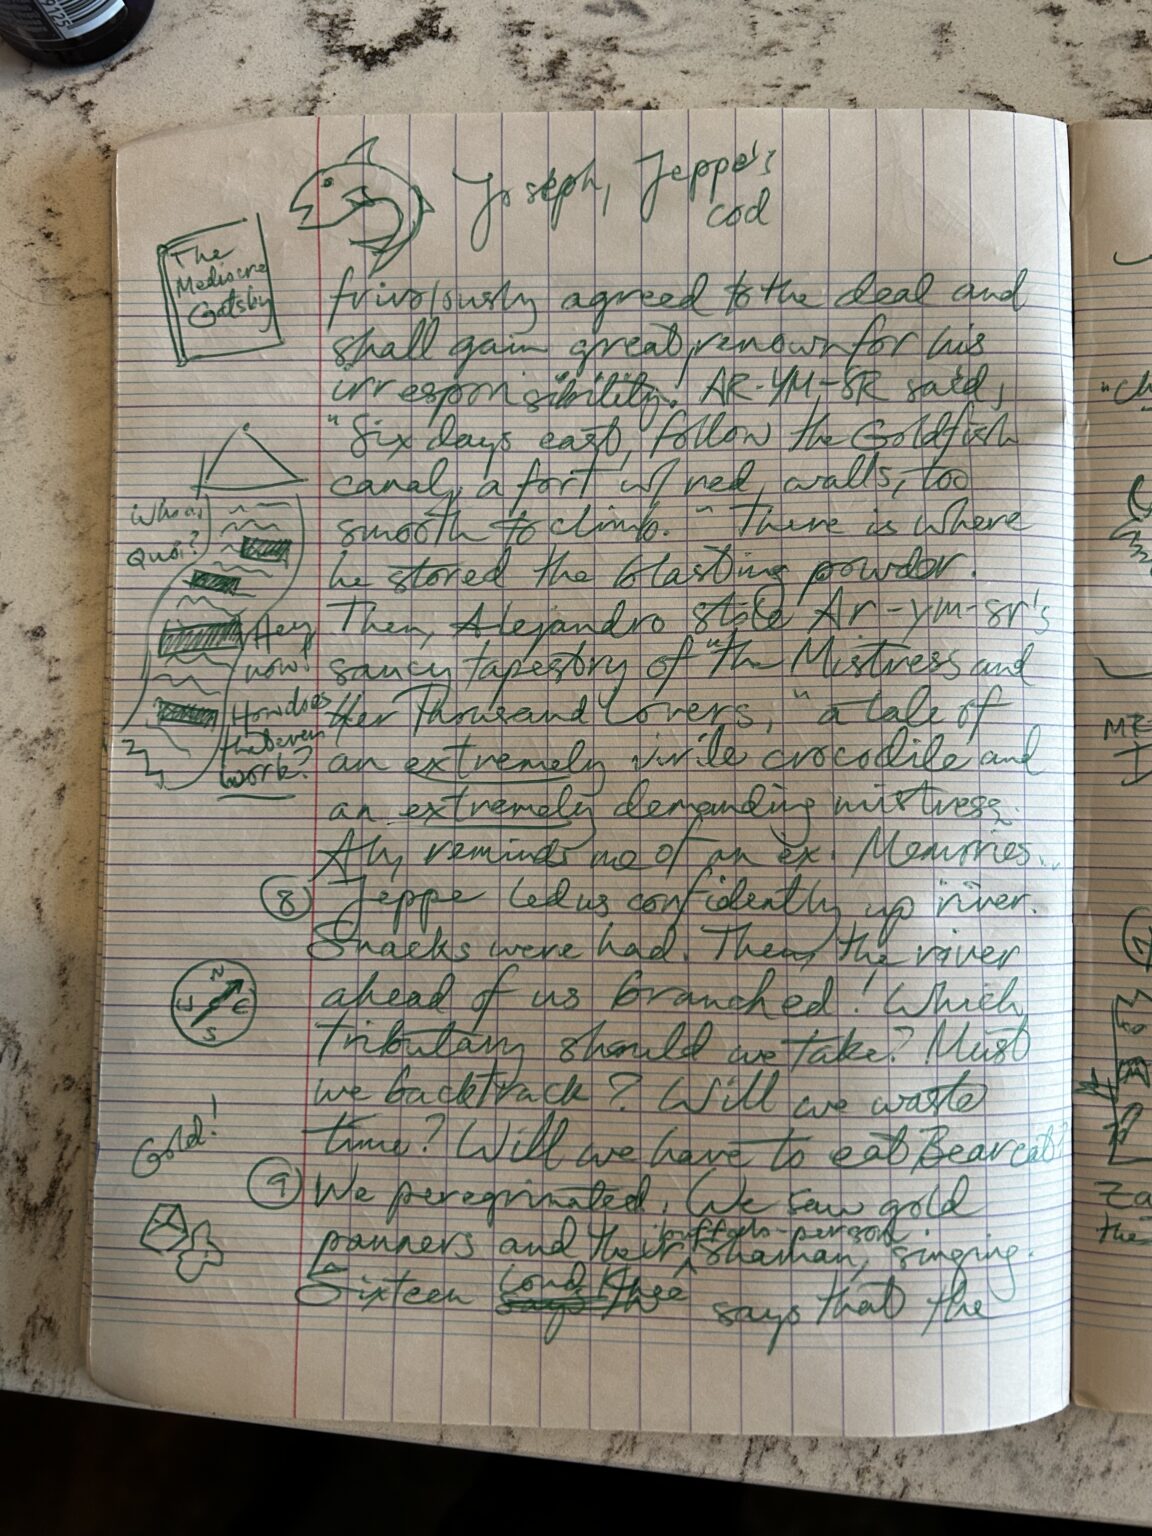 Joseph, Jeppe's
cod
The
Mediocre
Gatsby
frivolously agreed to the deal and
shall gain great renown for his
irresponsibility! AR-YM-SR said,
"Six days east, follow the Goldfish
canal, a fort w/ red, walls, too
smooth to climb." There is where
he stored the blasting powder.
Then, Alejandro stole Ar-ym-sr's
saucy tapestry of "the Mistress and
Her Thousand Lovers," a tale of
an extremely virile crocodile and
an extremely demanding mistress.
Ah, reminds me of an ex. Memories...
Whoa!
Quoi?
Hey
now!
How does
that even
work?
⑧ Jeppe led us confidently up river.
Snacks were had. Then, the river
ahead of us branched! Which
tributary should we take? Must
we backtrack? Will we waste
time? Will we have to eat Bearcat?
N
E
S
Gold!
⑨ We peregrinated. We saw gold
panners and their buffalo-person shaman, singing.
Sixteen says that the